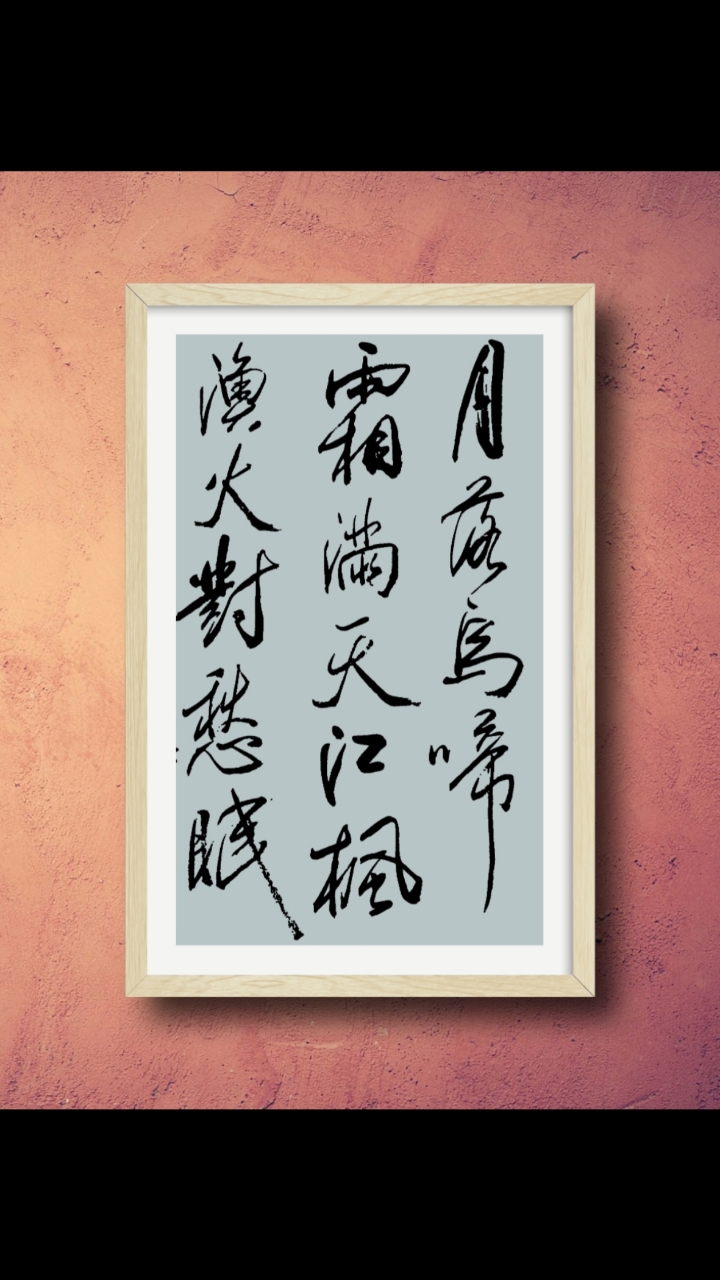 月落烏啼
霜滿天江楓
漁火對愁眠